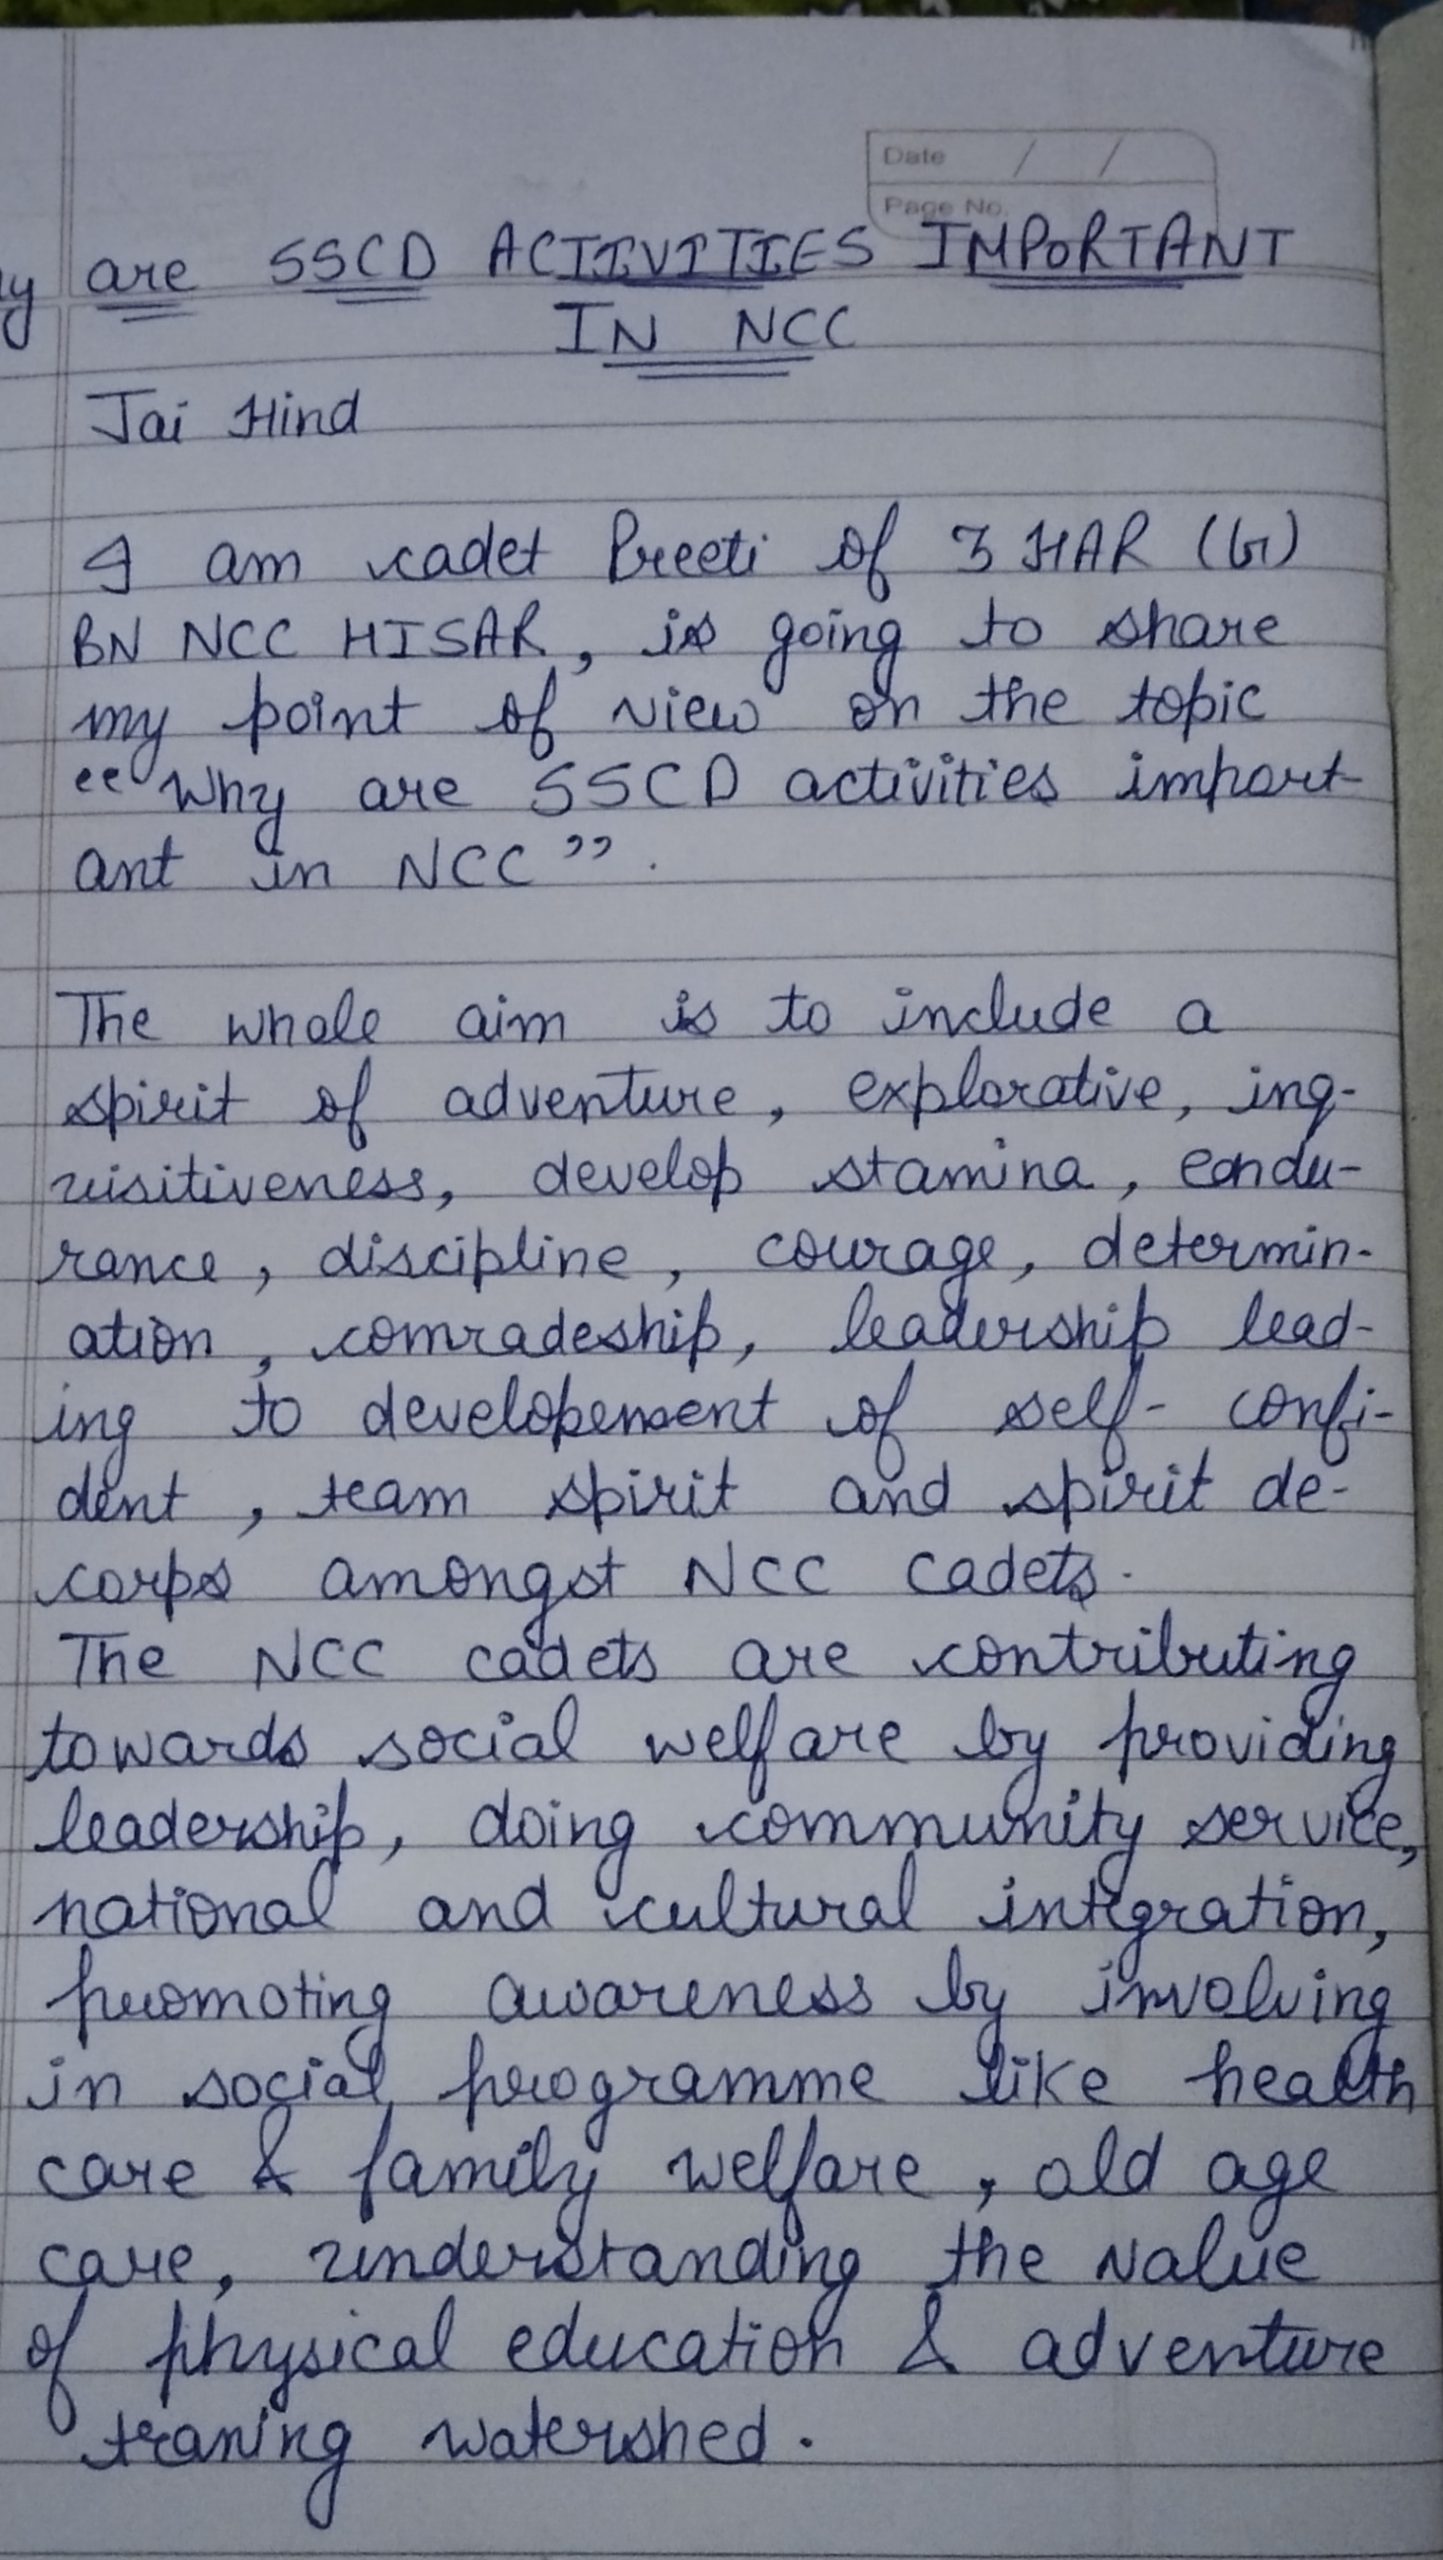 Date / /
Page No.
y are SSCD ACTIIVITIES IMPORTANT
IN NCC
Jai Hind
I am cadet Preeti of 3 HAR (G)
BN NCC HISAR, is going to share
my point of view on the topic
“Why are SSCD activities import-
ant in NCC”.
The whole aim is to include a
spirit of adventure, explorative, inq-
uisitiveness, develop stamina, endu-
rance, discipline, courage, determin-
ation, comradeship, leadership lead-
ing to developement of self- confi-
dent, team spirit and spirit de-
corps amongst NCC cadets.
The NCC cadets are contributing
towards social welfare by providing
leadership, doing community service,
national and cultural integration,
promoting awareness by involving
in social programme like health
care & family welfare, old age
care, understanding the value
of physical education & adventure
traning watershed.